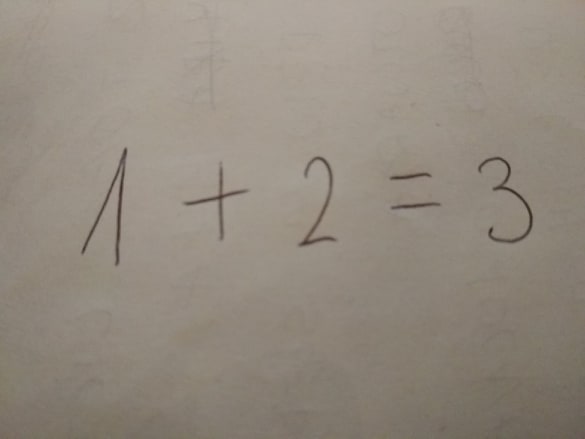 1 + 2 = 3